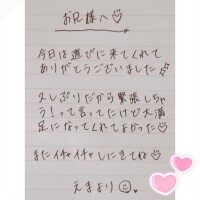 お兄様へ♡
今日は遊びに来てくれて
ありがとうございました
久しぶりだから緊張しちゃ
う!って言ってたけど大満
足になってくれてよかった♡
またイチャイチャしにきてね♡
えまより